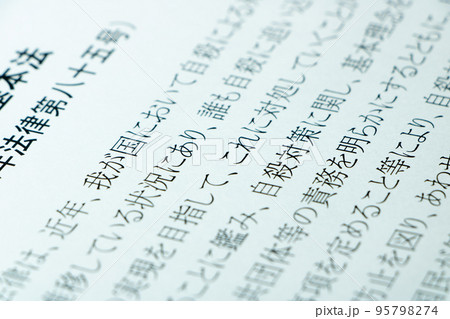 本法
法律第八十五号）
律は、近年、我が国において自殺による
移している状況にあり、誰も自殺に追い込
実現を目指して、これに対処していくことが
ことに鑑み、自殺対策に関し、基本理念を
共団体等の責務を明らかにするとともに
項を定めること等により、自殺
防止を図り、あわせ
pixta
95798274